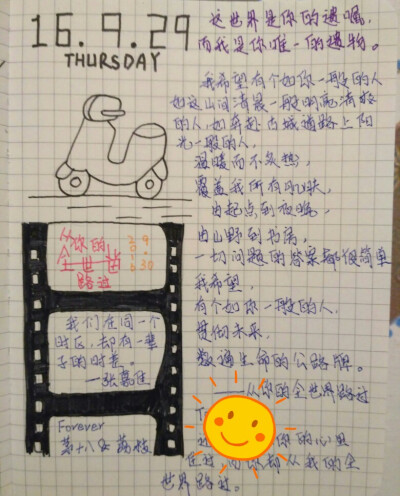 16.9.29
THURSDAY
这世界是你的遗嘱，
而我是你唯一的遗物。
我希望有个如你一般的人
如这山间清晨一般明亮清爽
的人，如奔赴古城道路上阳
光一般的人，
温暖而不炙热，
覆盖我所有肌肤。
由起点到夜晚，
由山野到书房，
一切问题的答案都很简单
我希望，
有个如你一般的人，
贯彻未来，
数遍生命的公路牌。
——从你的全世界路过
你的心里
我的全
世界路过。
从你的
全世界
路过
我们在同一个
时区，却有一辈
子的时差。
—张嘉佳
Forever